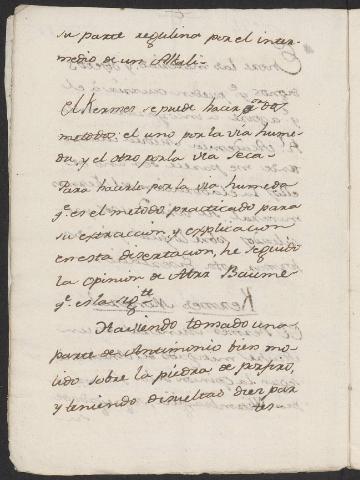 su parte regulina por el inter-
medio de un Alkali-
El Kermes se puede hacer pr dos
metodos: el uno por la via hume-
da, y el otro por la via seca-
Para hacerlo por la via humeda
qe es el metodo practicado para
su extraccion, y explicacion
en esta disertacion, he seguido
la opinion de Mxr Baumé
qe es la sigte
Haviendo tomado una
parte de Antimonio bien mo-
lido sobre la piedra de porfiro,
y teniendo disueltas diez par
tes